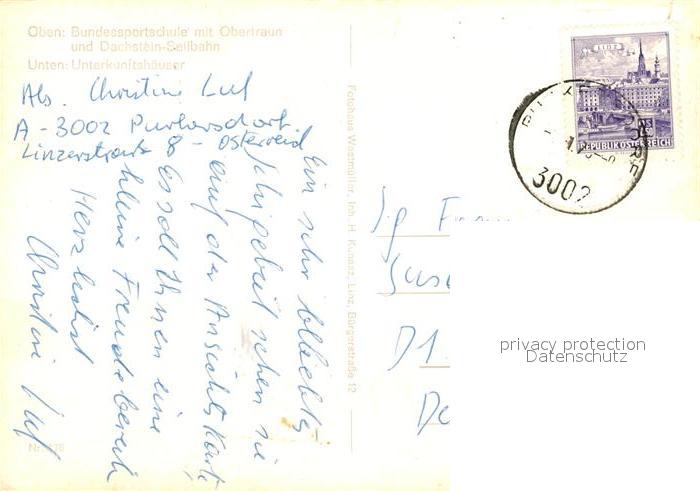 Oben: Bundessportschule mit Obertraun
und Dachstein-Seilbahn
Unten: Unterkunftshäuser
Abs. Christine Luf
A-3002 Purkersdorf
Linzerstraße 8 - Österreich
Ein sehr beliebtes
sehen sie
auf der Ansichtskarte
Es soll Ihnen eine
kleine Freude bereiten
Herzlichst
Christine Luf
Nr.
Fotohaus Westmüller, Inh. H. Kunasz, Linz, Bürgerstraße 12
LINZ
REPUBLIK ÖSTERREICH
3002
Sg
D1
privacy protection
Datenschutz